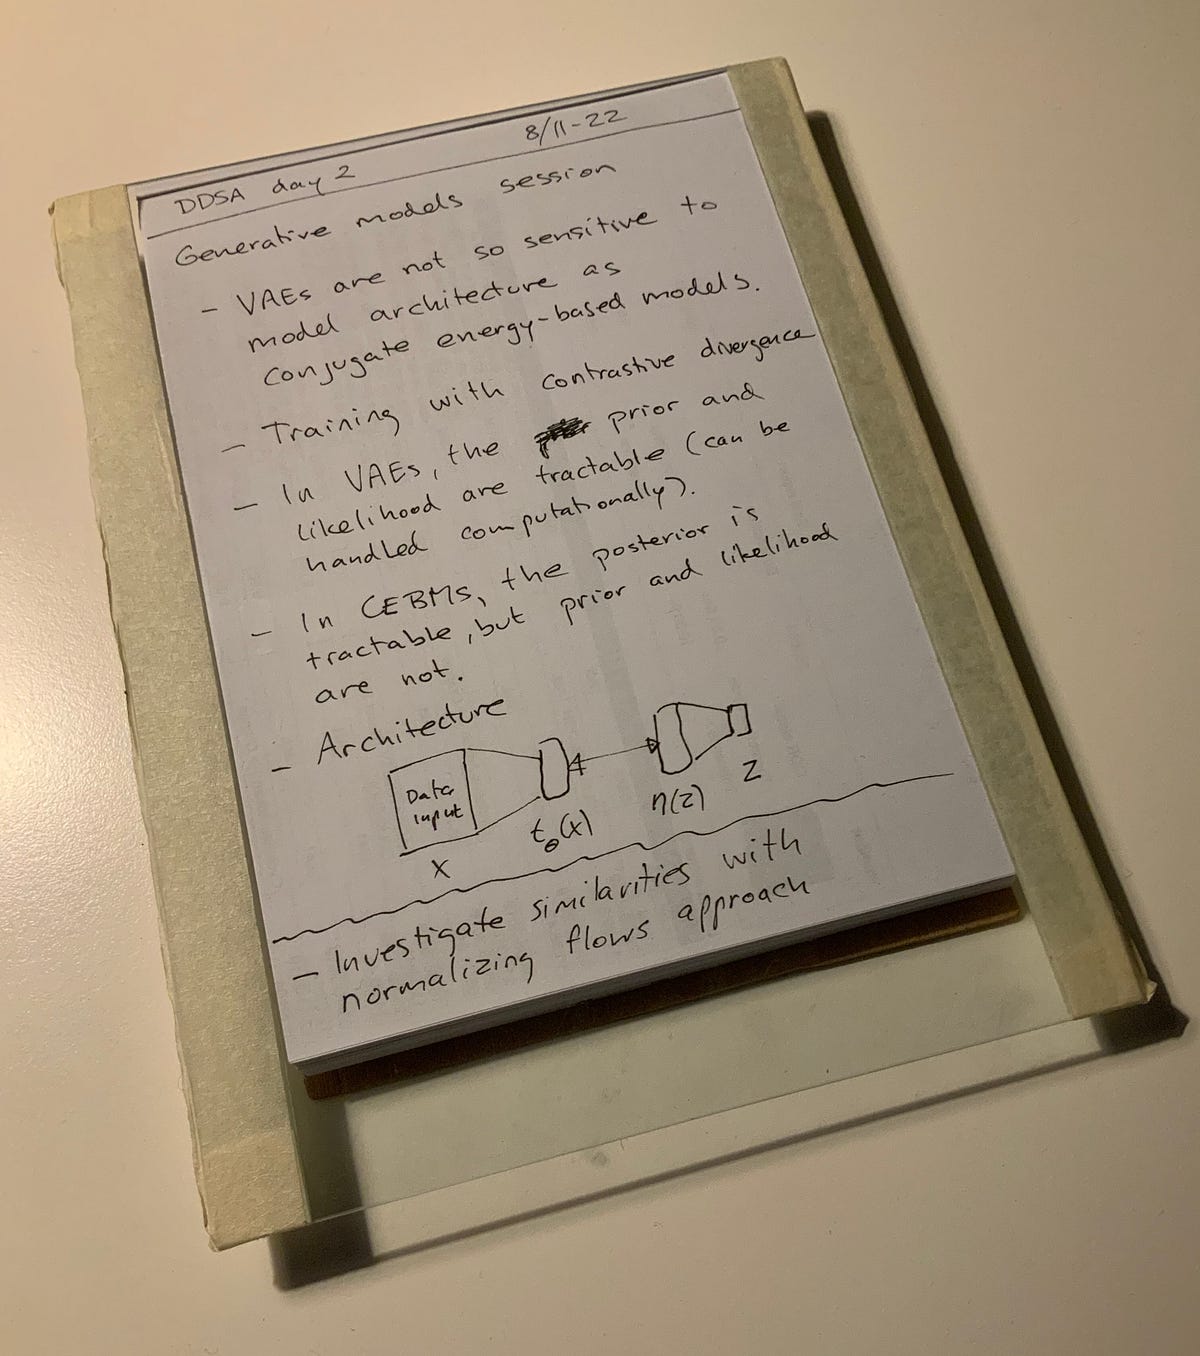 DDSA day 2 8/11-22
Generative models session
- VAEs are not so sensitive to
model architecture as
conjugate energy-based models.
- Training with contrastive divergence
- In VAEs, the prior and
likelihood are tractable (can be
handled computationally).
- In CEBMs, the posterior is
tractable, but prior and likelihood
are not.
- Architecture
Data
input
x
t_θ(x)
η(z)
z
- Investigate similarities with
normalizing flows approach